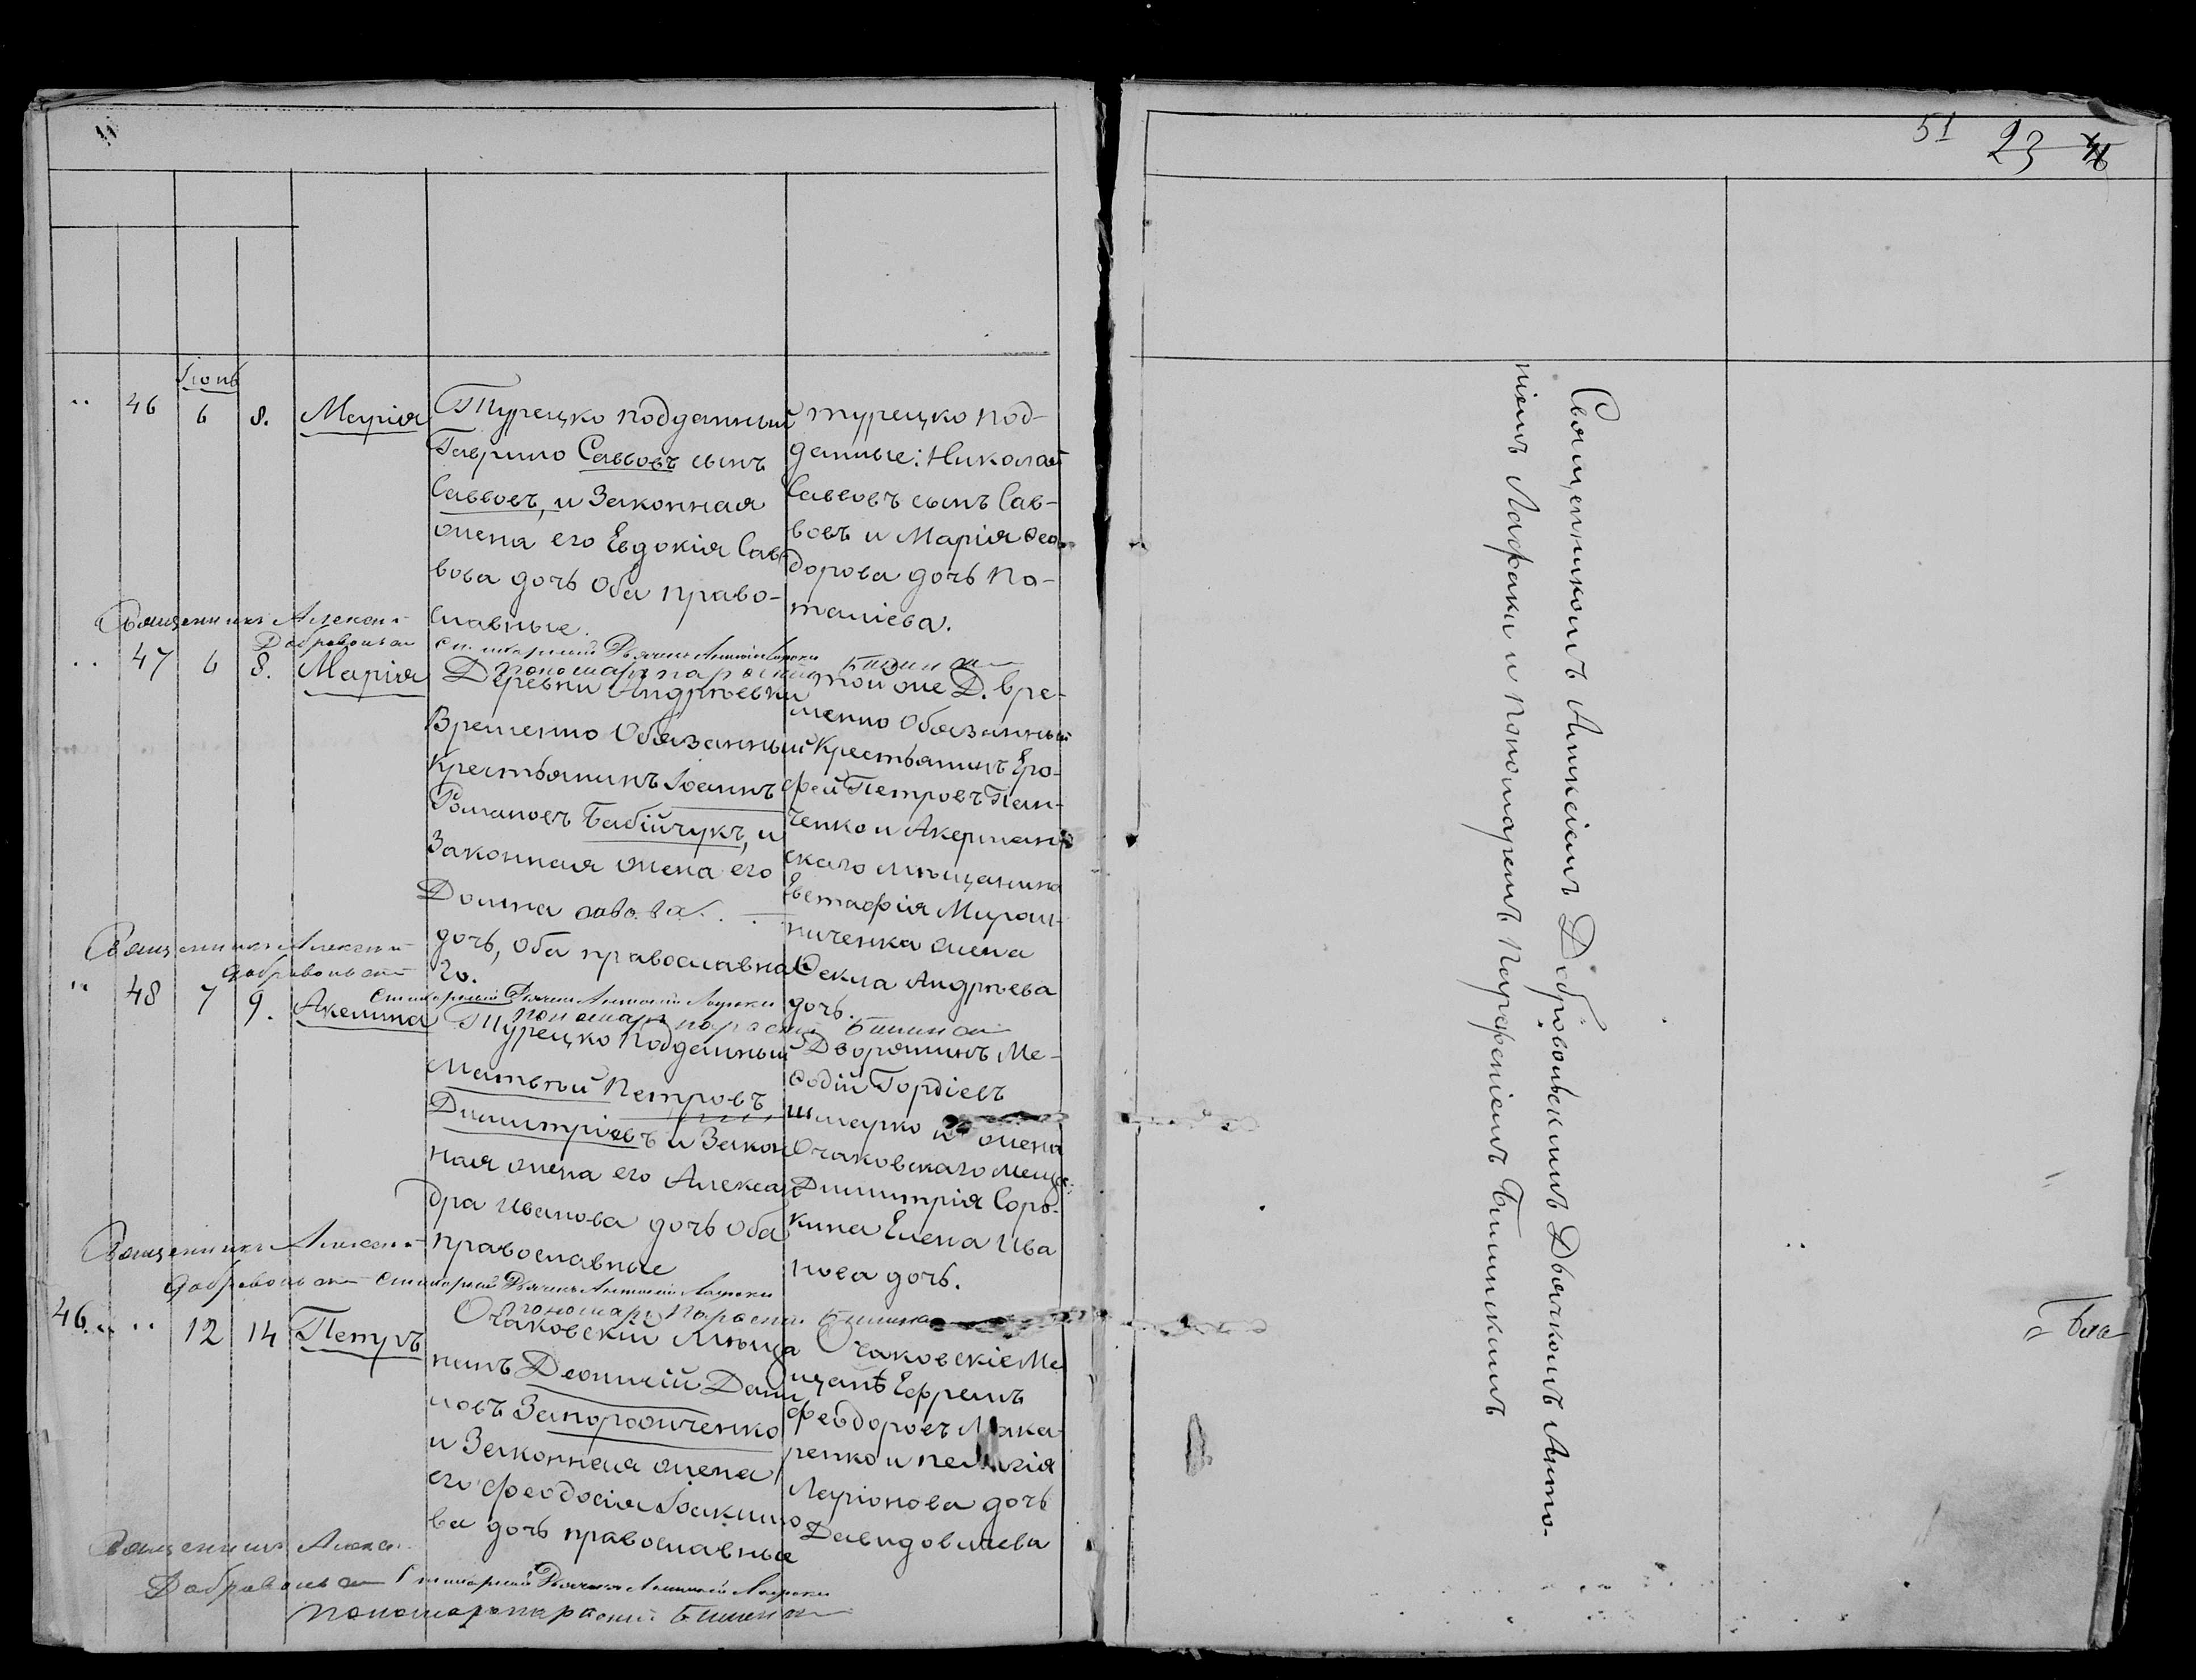 51 23
Іюнь
46 6 8. Марія
Турецко подданный
Гаврило Саввовъ сынъ
Саввовъ, и Законная
жена его Евдокія Сав
вова дочь Оба право-
славные.
турецко под-
данные: Николай
Саввовъ сынъ Сав-
вовъ и Марія Ѳео
дорова дочь По-
таліева.
Священникъ Алексій
Добровольскій Стихарный Дьячекъ Антоній Лафаки
пономарь Парфеній Бишинскій
47 6 8. Марія
Деревни Андрѣевки
Временно Обязанный
Крестьянинъ Іоаннъ
Романовъ Бабійчукъ, и
Законная жена его
Домна Савова
дочь, Оба православна
го.
той же Д. вре-
менно Обязанный
Крестьянинъ Еро-
фей Петровъ Пан-
ченко и Акерман
скаго мѣщанина
Евстафія Мирош-
ниченка жена
Ѳекла Андрѣева
дочь.
Священникъ Алексій
Добровольскій
Стихарный Дьячекъ Антоній Лафаки
пономарь Парфеній Бишинскій
48 7 9. Акелина
Турецко Подданный
Матвѣй Петровъ
Димитріевъ и Закон
ная жена его Алексан
дра Иванова дочь Оба
православные
Дворянинъ Ме-
ѳодій Гордіевъ
Шмарко и жена
Очаковскаго Меща
Димитрія Соро-
кина Елена Ива
нова дочь.
Священникъ Алексій
Добровольскій Стихарный Дьячекъ Антоній Лафаки
пономарь Парфеній Бишинскій
46 12 14 Петръ
Очаковскій Мѣща
нинъ Леонтій Дани
ловъ Запорожченко
и Законная жена
его Феодосія Іоакимо
ва дочь православные
Очаковскіе Ме
щанѣ Ефремъ
Феодоровъ Мака
ренко и Пелагія
Ларіонова дочь
Давидовичева
Священникъ Алексій
Добровольскій Стихарный Дьячекъ Антоній Лафаки
пономарь Парфеній Бишинскій
Священникомъ Алексіемъ Добровольскимъ Дьячкомъ Анто-
ніемъ Лафаки и пономаремъ Парфеніемъ Бишинскимъ